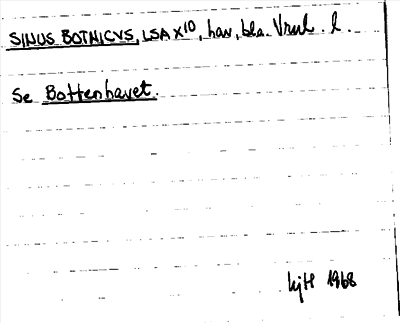 SINUS BOTNICVS, LSA X¹⁰, hav, bla. Vrul. l.
Se Bottenhavet.
1968